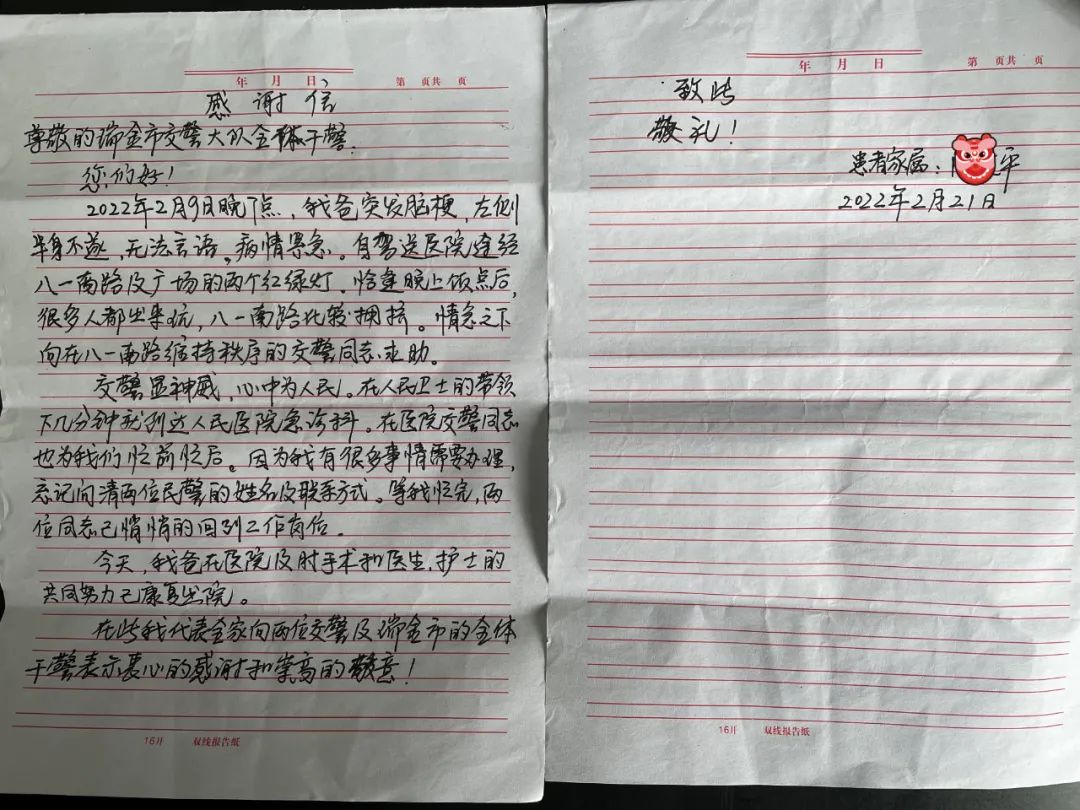 年 月 日
第 页共 页
感谢信
尊敬的瑞金市交警大队全体干警：
您们好！
2022年2月9日晚7点，我爸突发脑梗，左侧
半身不遂，无法言语，病情紧急。自驾送医院途经
八一南路及广场的两个红绿灯，恰逢晚上饭点后，
很多人都出来玩，八一南路比较拥挤。情急之下
向在八一南路维持秩序的交警同志求助。
交警显神威，心中为人民。在人民卫士的带领
下几分钟就到达人民医院急诊科。在医院交警同志
也为我们忙前忙后。因为我有很多事情需要办理，
忘记问清两位民警的姓名及联系方式。等我忙完，两
位同志已悄悄的回到工作岗位。
今天，我爸在医院及时手术和医生、护士的
共同努力已康复出院。
在此我代表全家向两位交警及瑞金市的全体
干警表示衷心的感谢和崇高的敬意！
16开 双线报告纸
年 月 日
第 页共 页
致此
敬礼！
患者家属：平
2022年2月21日
16开 双线报告纸